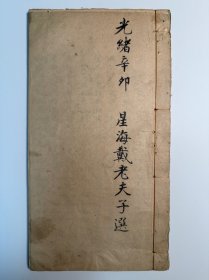 光緒辛卯 星海戴老夫子選